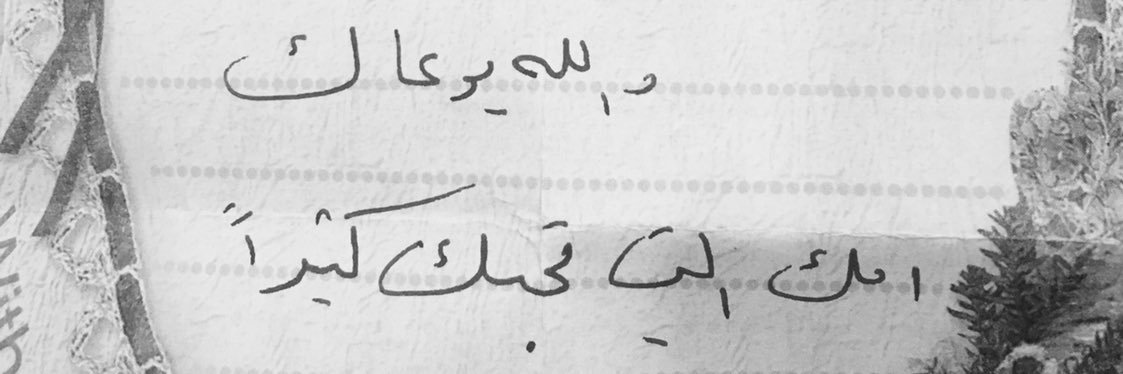 والله يرعاك
امك التي تحبك كثيراً